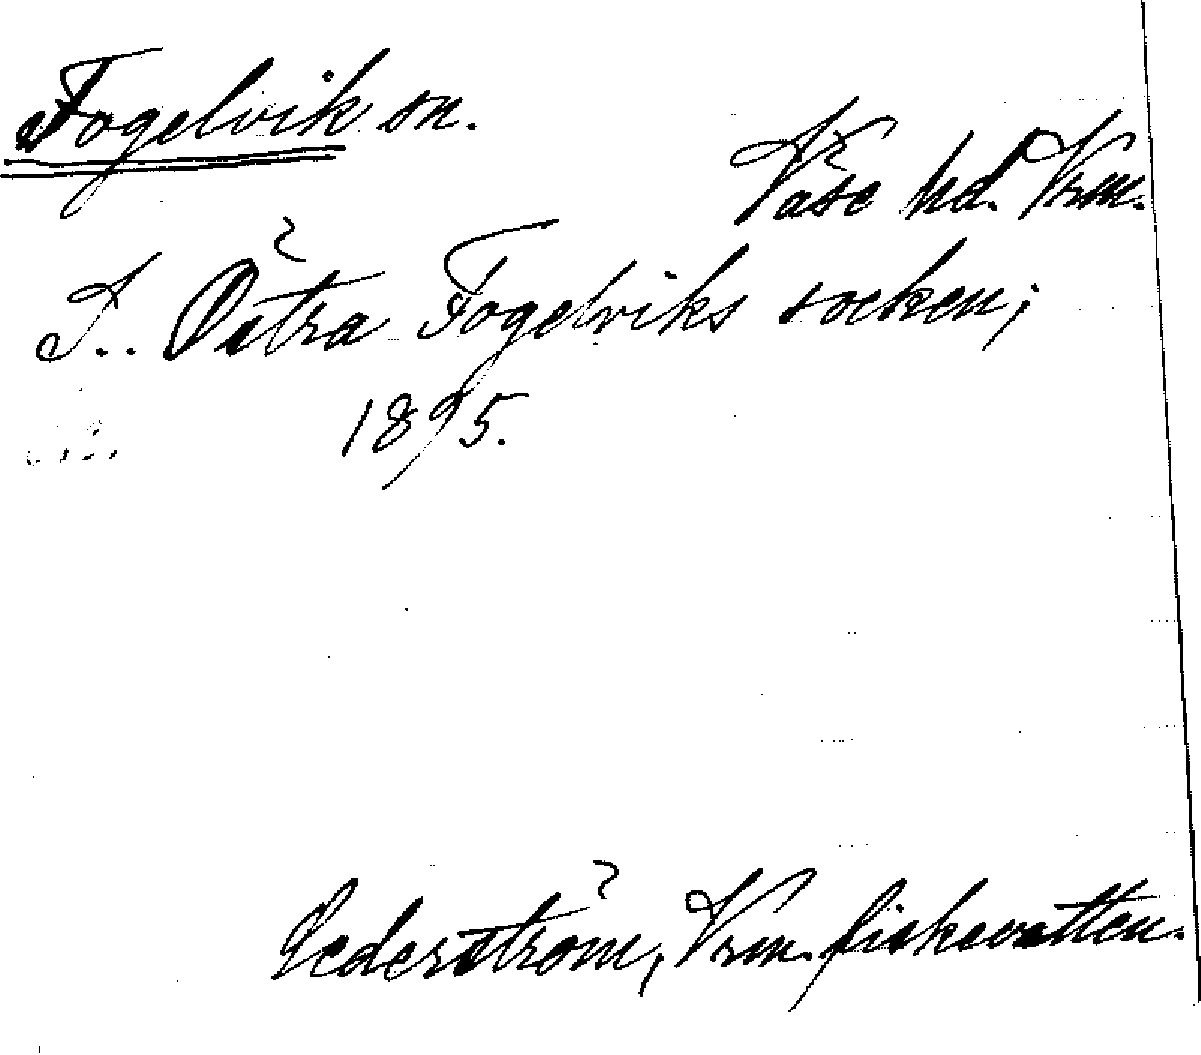 Fogelvik sn.
Väse hd. Vrm.
I.. Östra Fogelviks socken;
1895.
Cederström, Vrm. fiskevatten.